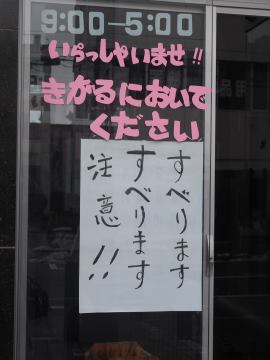 9:00-5:00
いらっしゃいませ!!
きがるにおいで
ください
すべります
すべります
注意!!
用品